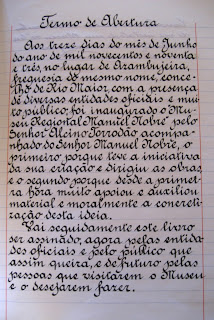 Termo de Abertura
Aos treze dias do mês de Junho
do ano de mil novecentos e noventa
e três, no lugar de Arambujeira,
freguesia do mesmo nome, conce-
lho de Rio Maior, com a presença
de diversas entidades oficiais e mui-
to público, foi inaugurado o "Mu-
seu Regional Manuel Nobre" pelo
Senhor Alcino Torrodão acompa-
nhado do Senhor Manuel Nobre, o
primeiro porque teve a iniciativa
da sua criação e dirigiu as obras,
e o segundo porque desde a primei-
ra hora muito apoiou e auxiliou
material e moralmente a concreti-
zação desta ideia.
Vai seguidamente este livro
ser assinado, agora pelas entida-
des oficiais e pelo público que
assim queira, e de futuro pelas
pessoas que visitarem o Museu
e o desejarem fazer.